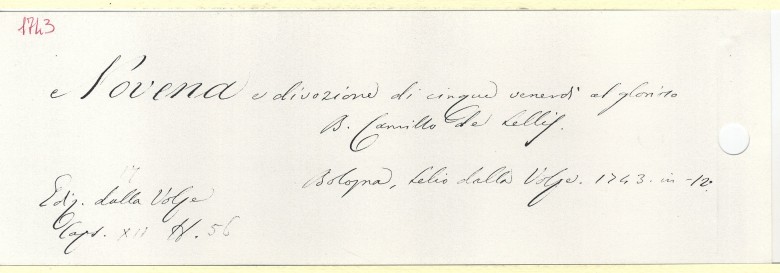 1743
Novena e divozione di cinque venerdì al glorioso
B. Camillo de Lellis.
Bologna, Lelio dalla Volpe. 1743. in-12.
17
Ediz. dalla Volpe
Caps. XII N. 56